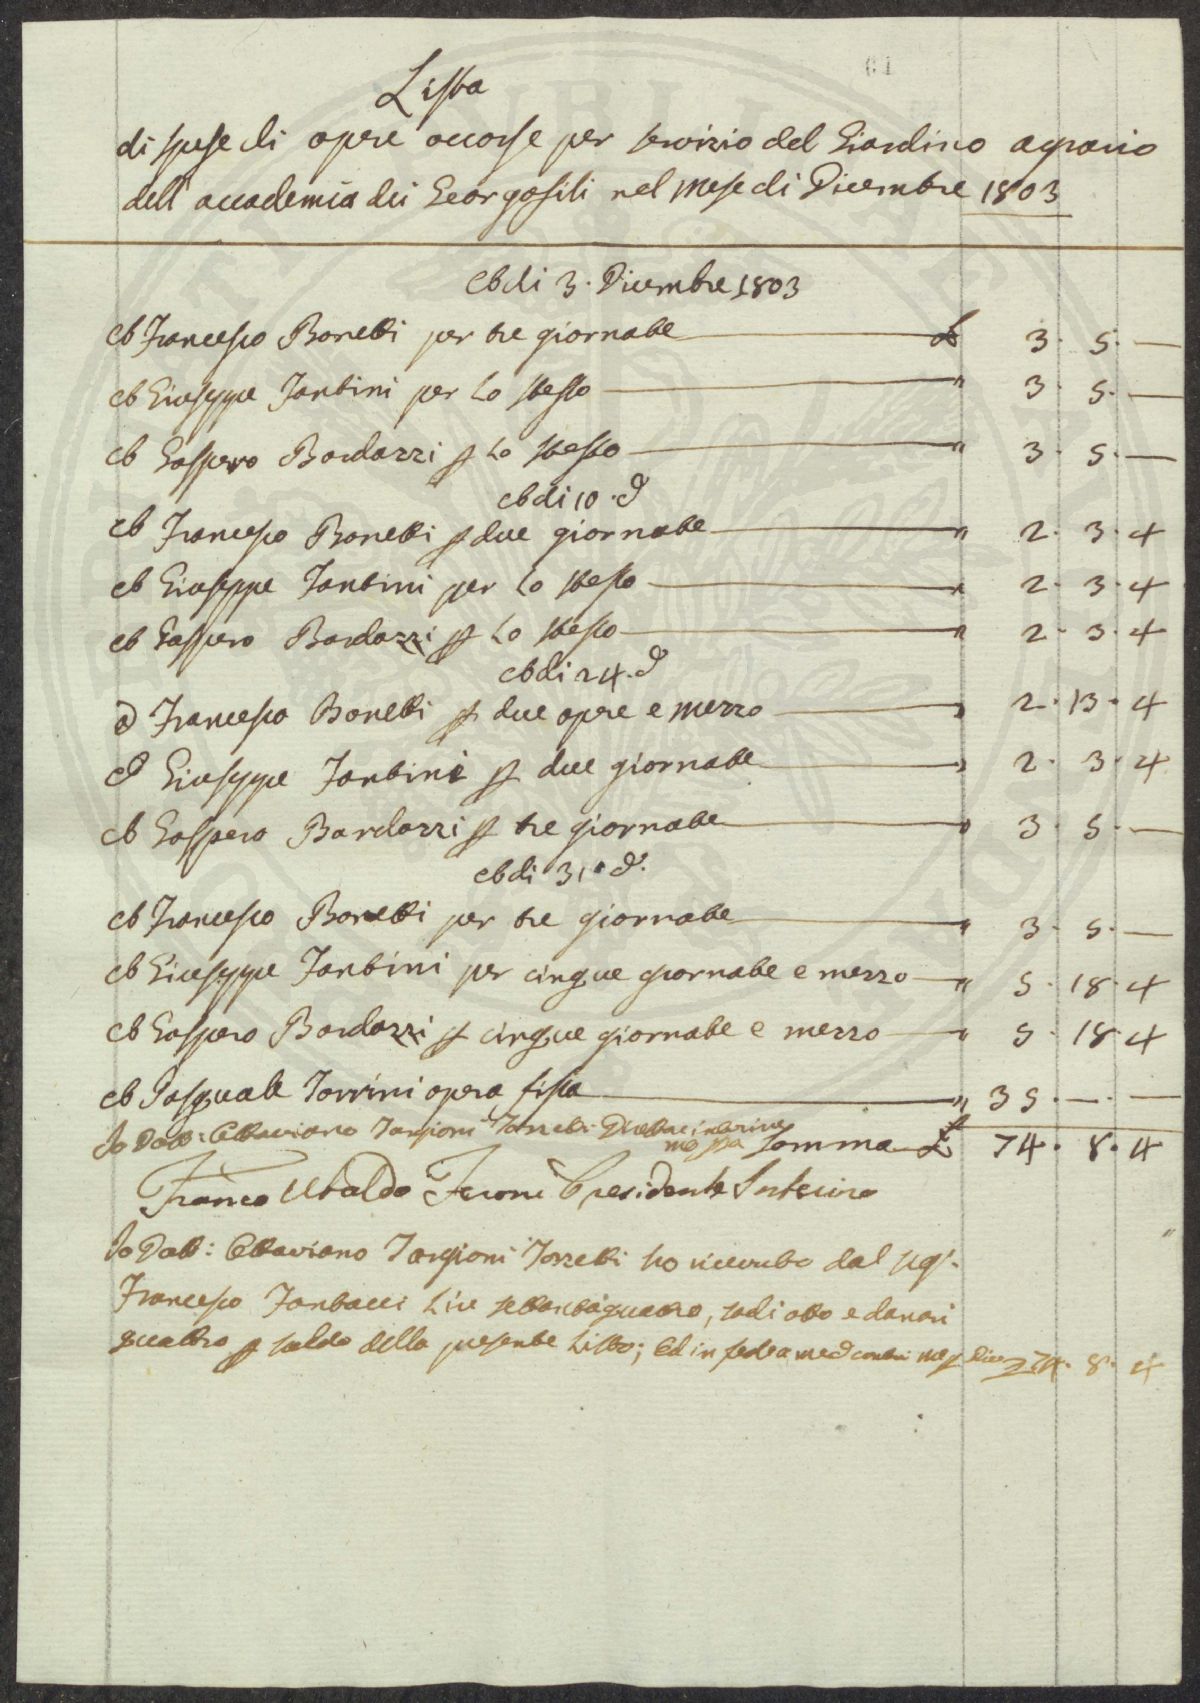 61
Lista
di spese di opere occorse per servizio del Giardino agrario
dell' accademia dei Georgofili nel Mese di Dicembre 1803
A di 3. Dicembre 1803
A Francesco Bonetti per tre giornate £ 3. 5. —
A Giuseppe Tantini per Lo stesso " 3. 5. —
A Gaspero Bardazzi p Lo stesso " 3. 5. —
A di 10. d
A Francesco Bonetti p due giornate " 2. 3. 4
A Giuseppe Tantini per Lo stesso " 2. 3. 4
A Gaspero Bardazzi p Lo stesso " 2. 3. 4
A di 24. d
A Francesco Bonetti p due opere e mezzo " 2. 13. 4
A Giuseppe Tantini p due giornate " 2. 3. 4
A Gaspero Bardazzi p tre giornate " 3. 5. —
A di 31. d.
A Francesco Bonetti per tre giornate " 3. 5. —
A Giuseppe Tantini per cinque giornate e mezzo " 5. 18. 4
A Gaspero Bardazzi p cinque giornate e mezzo " 5. 18. 4
A Pasquale Torrini opera fissa " 35. —. —
Io Dott: Ottaviano Targioni Tozzetti Direttore Somma £ 74. 8. 4
Franco Ubaldo Feroni Presidente Interino
Io Dott: Ottaviano Targioni Tozzetti ho ricevuto dal Sig.
Francesco Lire settantaquattro, soldi otto e danari
quattro p saldo della presente Lista; Ed in fede 74. 8. 4